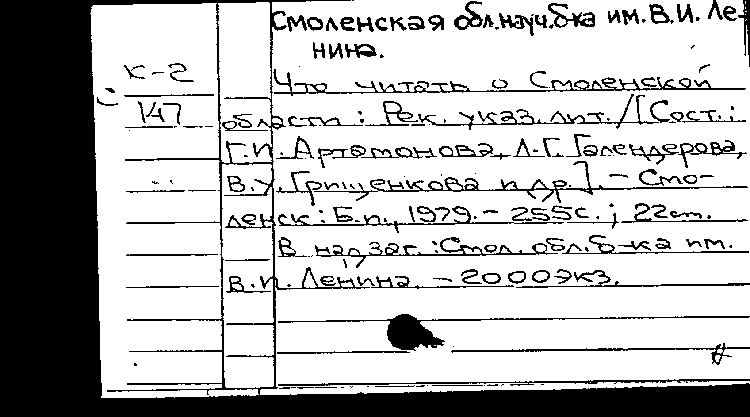 Смоленская обл. науч. б-ка им. В.И. Ле-
нина.
К-2
Что читать о Смоленской
147
области : Рек. указ. лит. / [Сост.:
Г.И. Артамонова, Л.Г. Галендерова,
В.У. Грищенкова и др.]. – Смо-
ленск : Б.и., 1979. – 255 с. ; 22 см.
В надзаг. : Смол. обл. б-ка им.
В.И. Ленина. – 2000 экз.